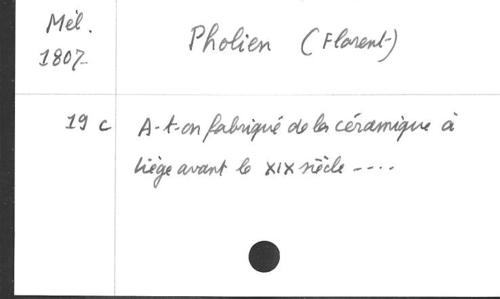 Mél.
1807-
Pholien (Florent)
19 c
A-t-on fabriqué de la céramique à
Liège avant le XIX siècle ----